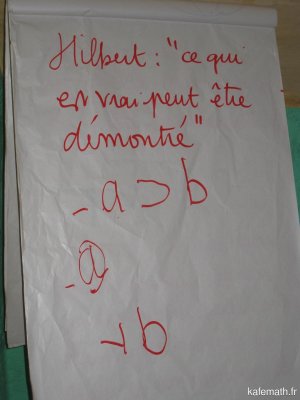 Hilbert : "ce qui
est vrai peut être
démontré"
- a ⊃ b
- a
⊢ b
kafemath.fr